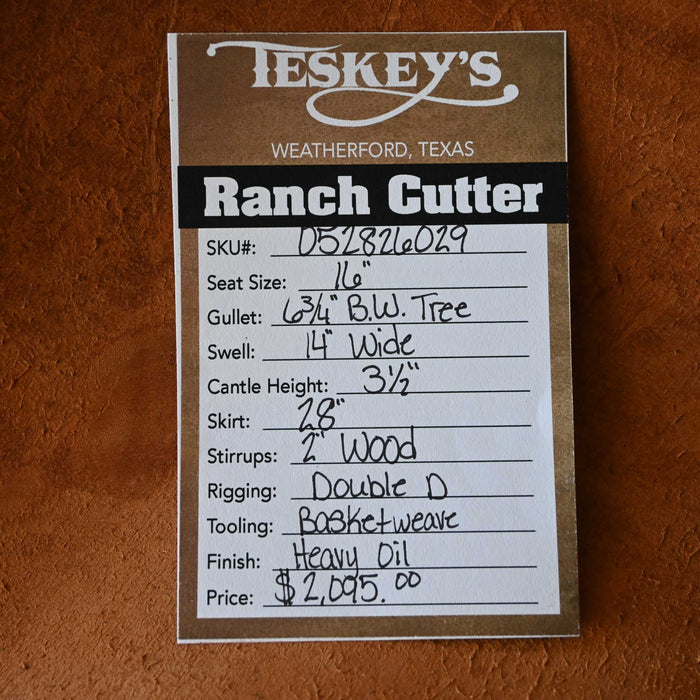 TESKEY'S
WEATHERFORD, TEXAS
Ranch Cutter
SKU#: 052826029
Seat Size: 16"
Gullet: 6 3/4" B.W. Tree
Swell: 14" Wide
Cantle Height: 3 1/2"
Skirt: 28"
Stirrups: 2" Wood
Rigging: Double D
Tooling: Basketweave
Finish: Heavy Oil
Price: $2,095.00